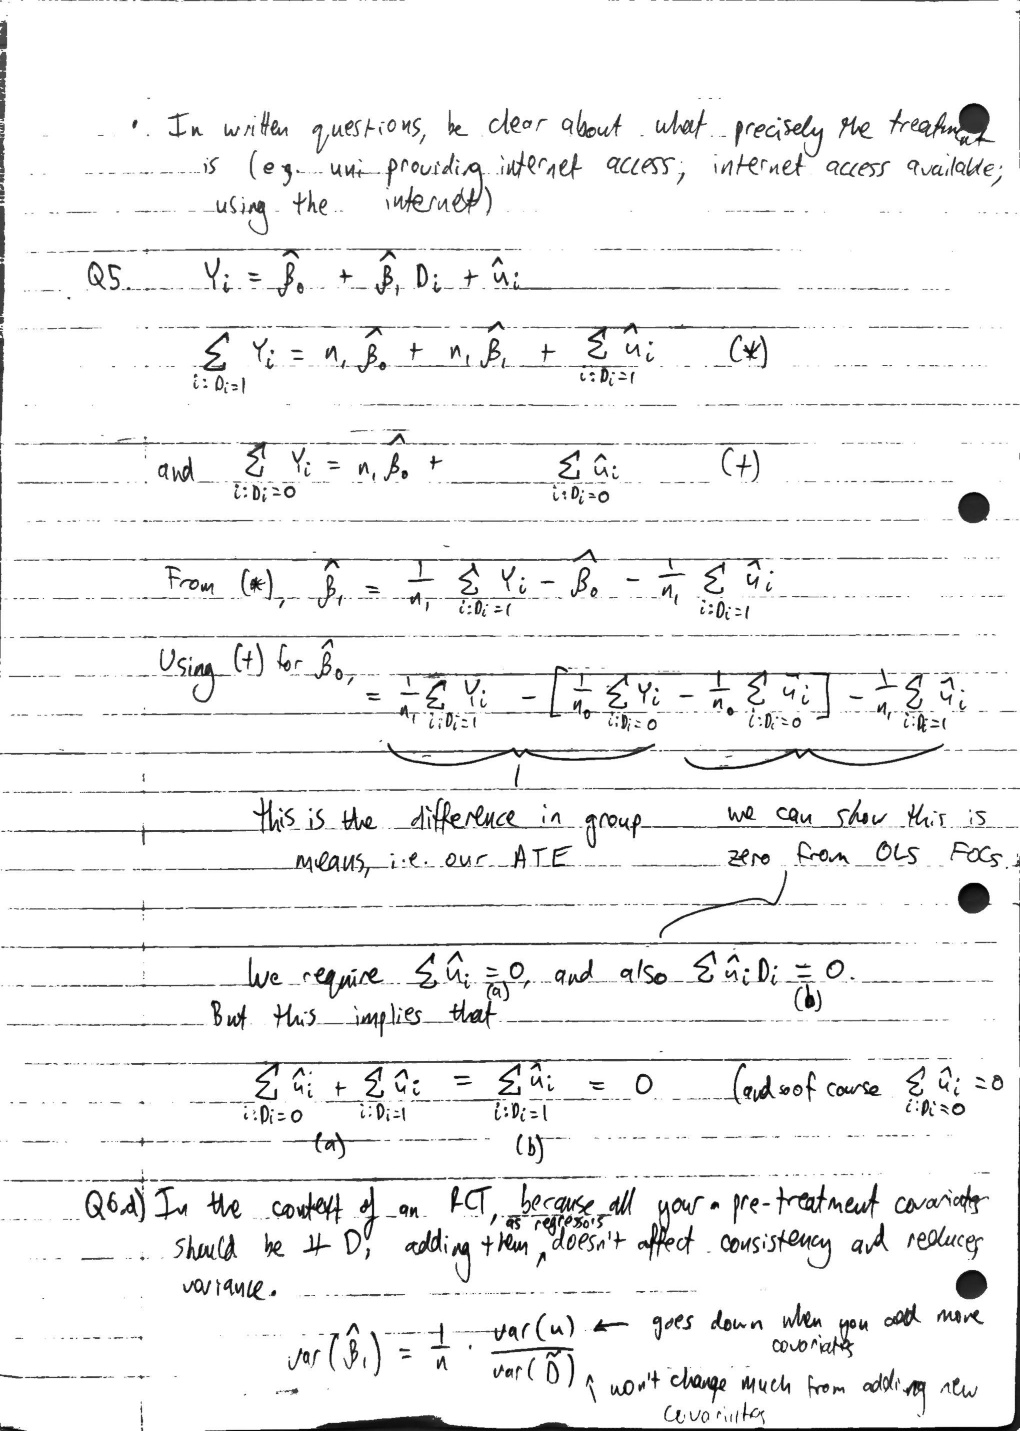 • In written questions, be clear about what precisely the treatment
is (e.g. uni providing internet access; internet access available;
using the internet)
Q5. Yᵢ = β̂₀ + β̂₁ Dᵢ + ûᵢ
∑_{i:Dᵢ=1} Yᵢ = n₁ β̂₀ + n₁ β̂₁ + ∑_{i:Dᵢ=1} ûᵢ (*)
and ∑_{i:Dᵢ=0} Yᵢ = n₁ β̂₀ + ∑_{i:Dᵢ=0} ûᵢ (+)
From (*), β̂₁ = 1/n₁ ∑_{i:Dᵢ=1} Yᵢ − β̂₀ − 1/n₁ ∑_{i:Dᵢ=1} ûᵢ
Using (+) for β̂₀,
= 1/n₁ ∑_{i:Dᵢ=1} Yᵢ − [1/n₀ ∑_{i:Dᵢ=0} Yᵢ − 1/n₀ ∑_{i:Dᵢ=0} ûᵢ] − 1/n₁ ∑_{i:Dᵢ=1} ûᵢ
this is the difference in group
means, i.e. our ATE
we can show this is
zero from OLS FOCs.
We require ∑ûᵢ = 0, and also ∑ûᵢDᵢ = 0.
(a) (b)
But this implies that
∑_{i:Dᵢ=0} ûᵢ + ∑_{i:Dᵢ=1} ûᵢ = ∑_{i:Dᵢ=1} ûᵢ = 0 (and so of course ∑_{i:Dᵢ=0} ûᵢ = 0
(a) (b)
Q6.d) In the context of an RCT, because all your pre-treatment covariates
should be ⫫ D, adding them as regressors doesn't affect consistency and reduces
variance.
var(β̂₁) = 1/n · var(u)/var(D̃) ← goes down when you add more
covariates
↑ won't change much from adding new
covariates